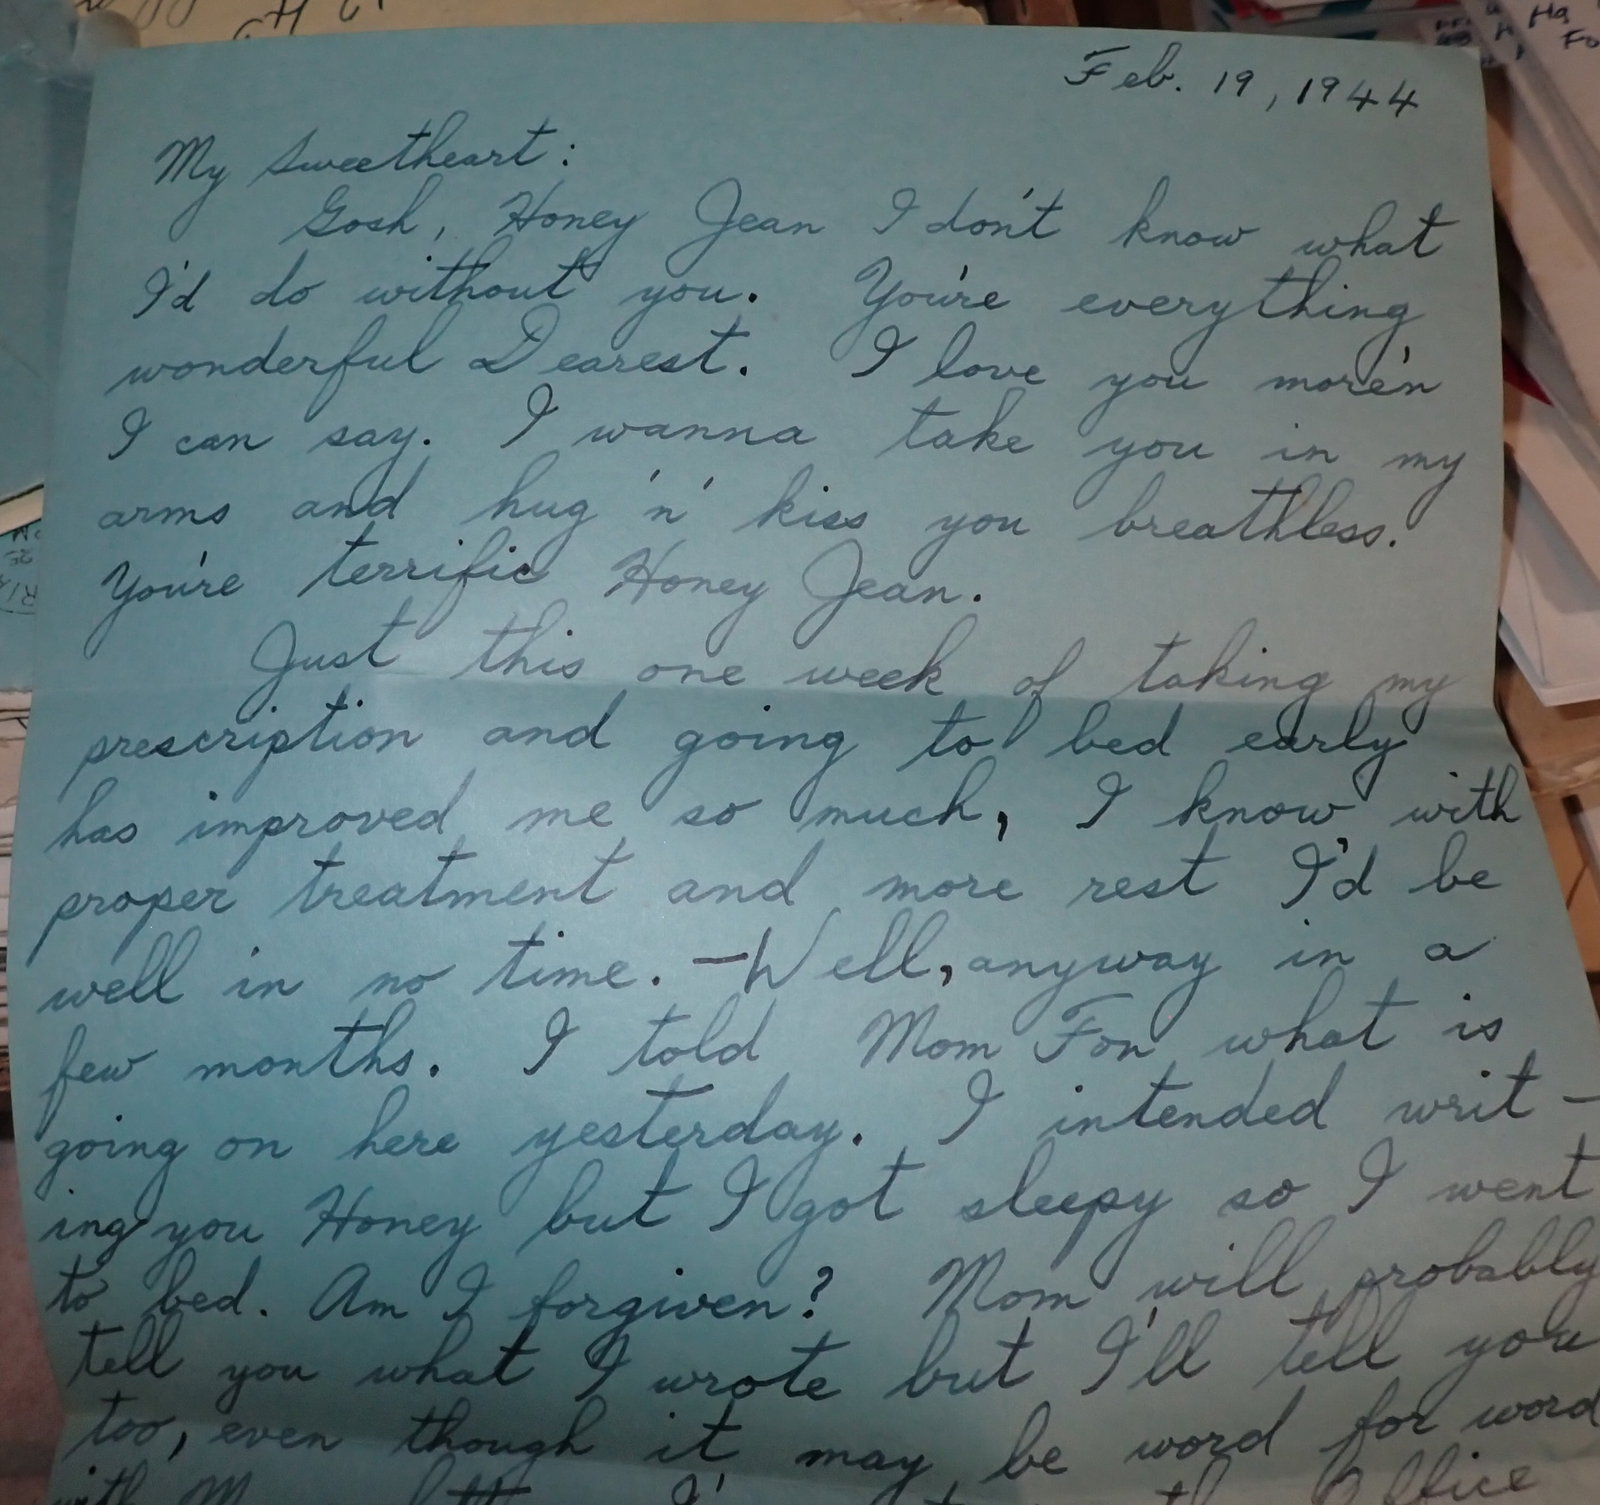 Feb. 19, 1944
My Sweetheart:
Gosh, Honey Jean I don't know what
I'd do without you. You're everything
wonderful Dearest. I love you more'n
I can say. I wanna take you in my
arms and hug 'n' kiss you breathless.
You're terrific Honey Jean.
Just this one week of taking my
prescription and going to bed early
has improved me so much, I know with
proper treatment and more rest I'd be
well in no time. — Well, anyway in a
few months. I told Mom Fon what is
going on here yesterday. I intended writ-
ing you Honey but I got sleepy so I went
to bed. Am I forgiven? Mom will probably
tell you what I wrote but I'll tell you
too, even though it may be word for word
with Office